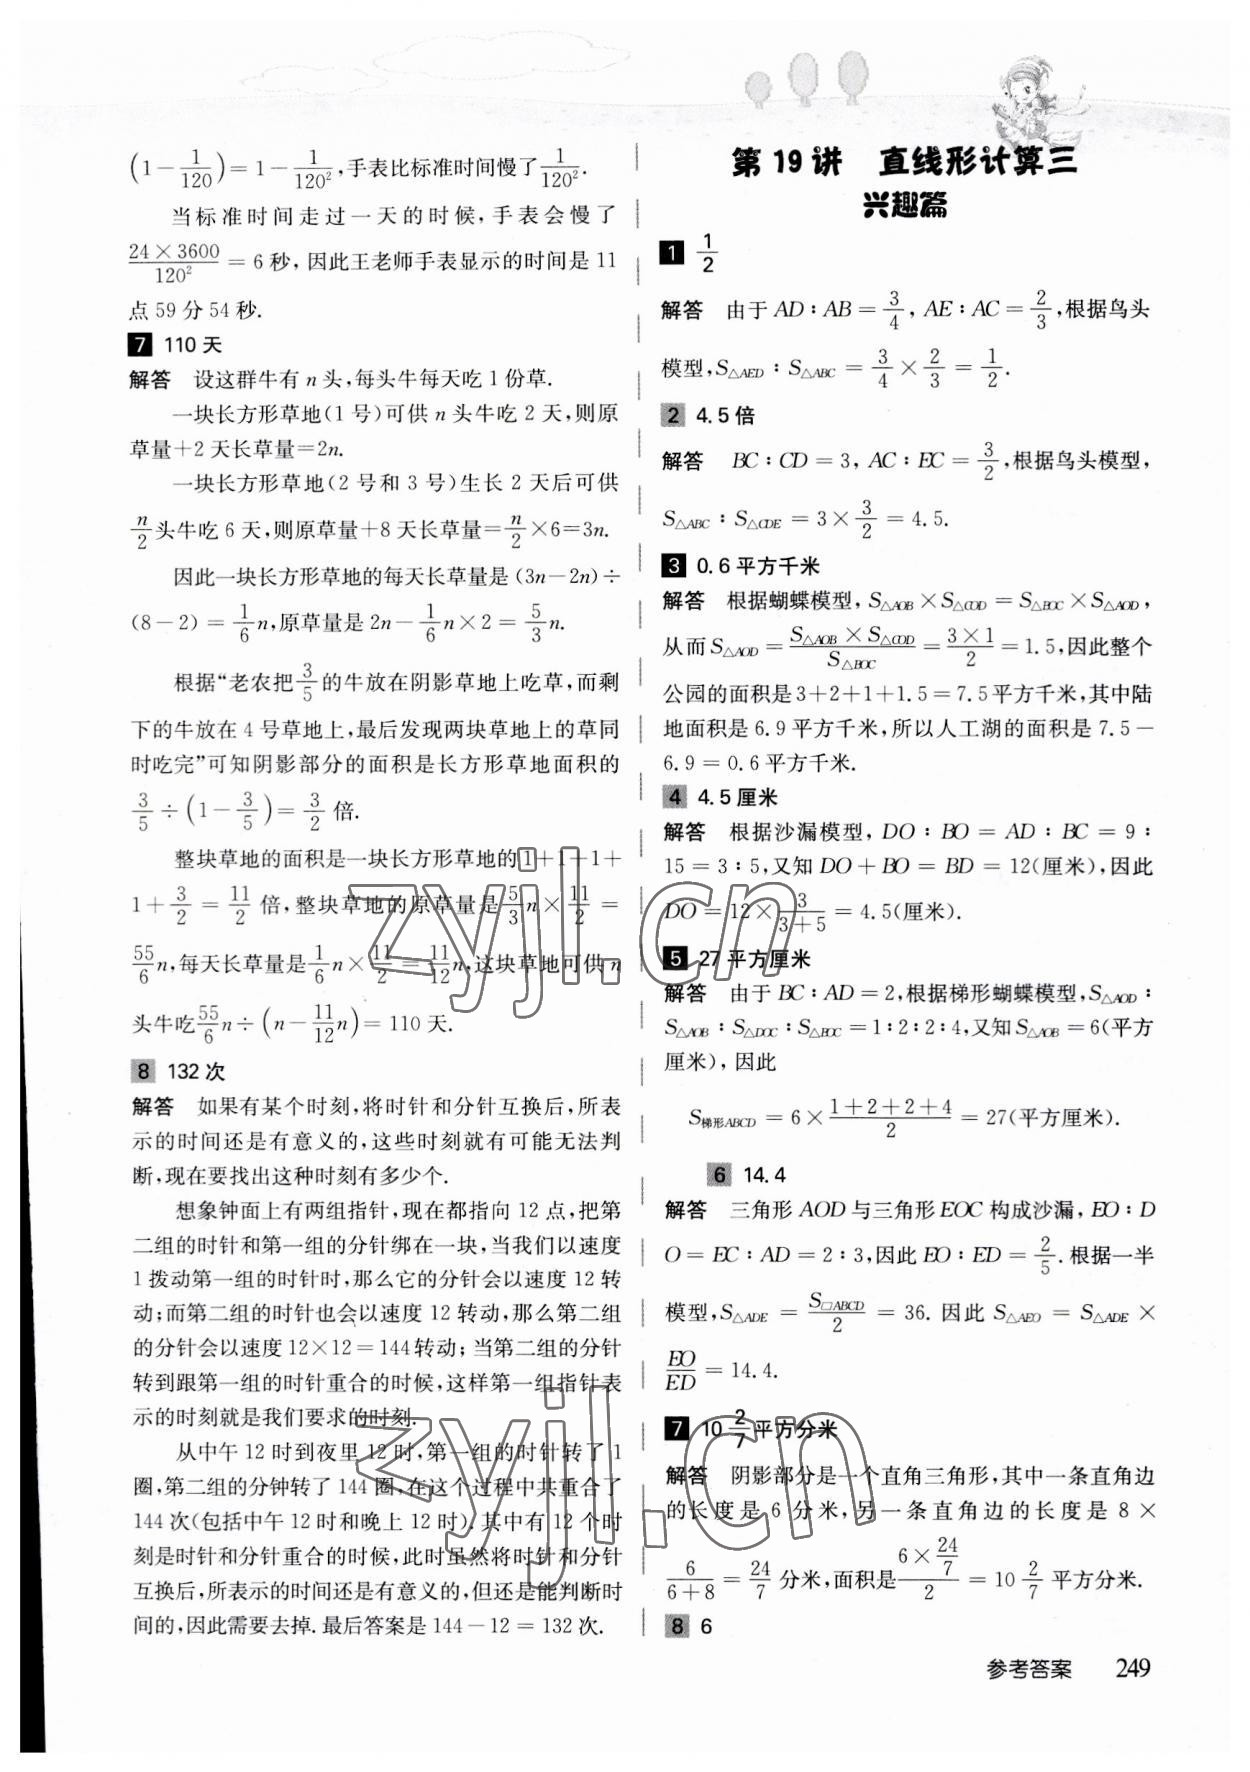 (1−1/120)=1−1/120²,手表比标准时间慢了1/120².
当标准时间走过一天的时候,手表会慢了
24×3600/120²=6秒,因此王老师手表显示的时间是11
点59分54秒.
7 110天
解答 设这群牛有n头,每头牛每天吃1份草.
一块长方形草地(1号)可供n头牛吃2天,则原
草量+2天长草量=2n.
一块长方形草地(2号和3号)生长2天后可供
n/2头牛吃6天,则原草量+8天长草量=n/2×6=3n.
因此一块长方形草地的每天长草量是(3n−2n)÷
(8−2)=1/6n,原草量是2n−1/6n×2=5/3n.
根据“老农把3/5的牛放在阴影草地上吃草,而剩
下的牛放在4号草地上,最后发现两块草地上的草同
时吃完”可知阴影部分的面积是长方形草地面积的
3/5÷(1−3/5)=3/2倍.
整块草地的面积是一块长方形草地的1+1+1+
1+3/2=11/2倍,整块草地的原草量是5/3n×11/2=
55/6n,每天长草量是1/6n×11/2=11/12n,这块草地可供n
头牛吃55/6n÷(n−11/12n)=110天.
8 132次
解答 如果有某个时刻,将时针和分针互换后,所表
示的时间还是有意义的,这些时刻就有可能无法判
断,现在要找出这种时刻有多少个.
想象钟面上有两组指针,现在都指向12点,把第
二组的时针和第一组的分针绑在一块,当我们以速度
1拨动第一组的时针时,那么它的分针会以速度12转
动;而第二组的时针也会以速度12转动,那么第二组
的分针会以速度12×12=144转动;当第二组的分针
转到跟第一组的时针重合的时候,这样第一组指针表
示的时刻就是我们要求的时刻.
从中午12时到夜里12时,第一组的时针转了1
圈,第二组的分钟转了144圈,在这个过程中共重合了
144次(包括中午12时和晚上12时).其中有12个时
刻是时针和分针重合的时候,此时虽然将时针和分针
互换后,所表示的时间还是有意义的,但还是能判断时
间的,因此需要去掉.最后答案是144−12=132次.
第19讲 直线形计算三
兴趣篇
1 1/2
解答 由于AD∶AB=3/4,AE∶AC=2/3,根据鸟头
模型,S△AED∶S△ABC=3/4×2/3=1/2.
2 4.5倍
解答 BC∶CD=3,AC∶EC=3/2,根据鸟头模型,
S△ABC∶S△CDE=3×3/2=4.5.
3 0.6平方千米
解答 根据蝴蝶模型,S△AOB×S△COD=S△BOC×S△AOD,
从而S△AOD=S△AOB×S△COD/S△BOC=3×1/2=1.5,因此整个
公园的面积是3+2+1+1.5=7.5平方千米,其中陆
地面积是6.9平方千米,所以人工湖的面积是7.5−
6.9=0.6平方千米.
4 4.5厘米
解答 根据沙漏模型,DO∶BO=AD∶BC=9∶
15=3∶5,又知DO+BO=BD=12(厘米),因此
DO=12×3/3+5=4.5(厘米).
5 27平方厘米
解答 由于BC∶AD=2,根据梯形蝴蝶模型,S△AOD∶
S△AOB∶S△DOC∶S△BOC=1∶2∶2∶4,又知S△AOB=6(平方
厘米),因此
S梯形ABCD=6×1+2+2+4/2=27(平方厘米).
6 14.4
解答 三角形AOD与三角形EOC构成沙漏,EO∶D
O=EC∶AD=2∶3,因此EO∶ED=2/5.根据一半
模型,S△ADE=S□ABCD/2=36.因此S△AEO=S△ADE×
EO/ED=14.4.
7 10 2/7平方分米
解答 阴影部分是一个直角三角形,其中一条直角边
的长度是6分米,另一条直角边的长度是8×
6/6+8=24/7分米,面积是6×24/7/2=10 2/7平方分米.
8 6
参考答案 249
zyjl.cn
zyjl.cn